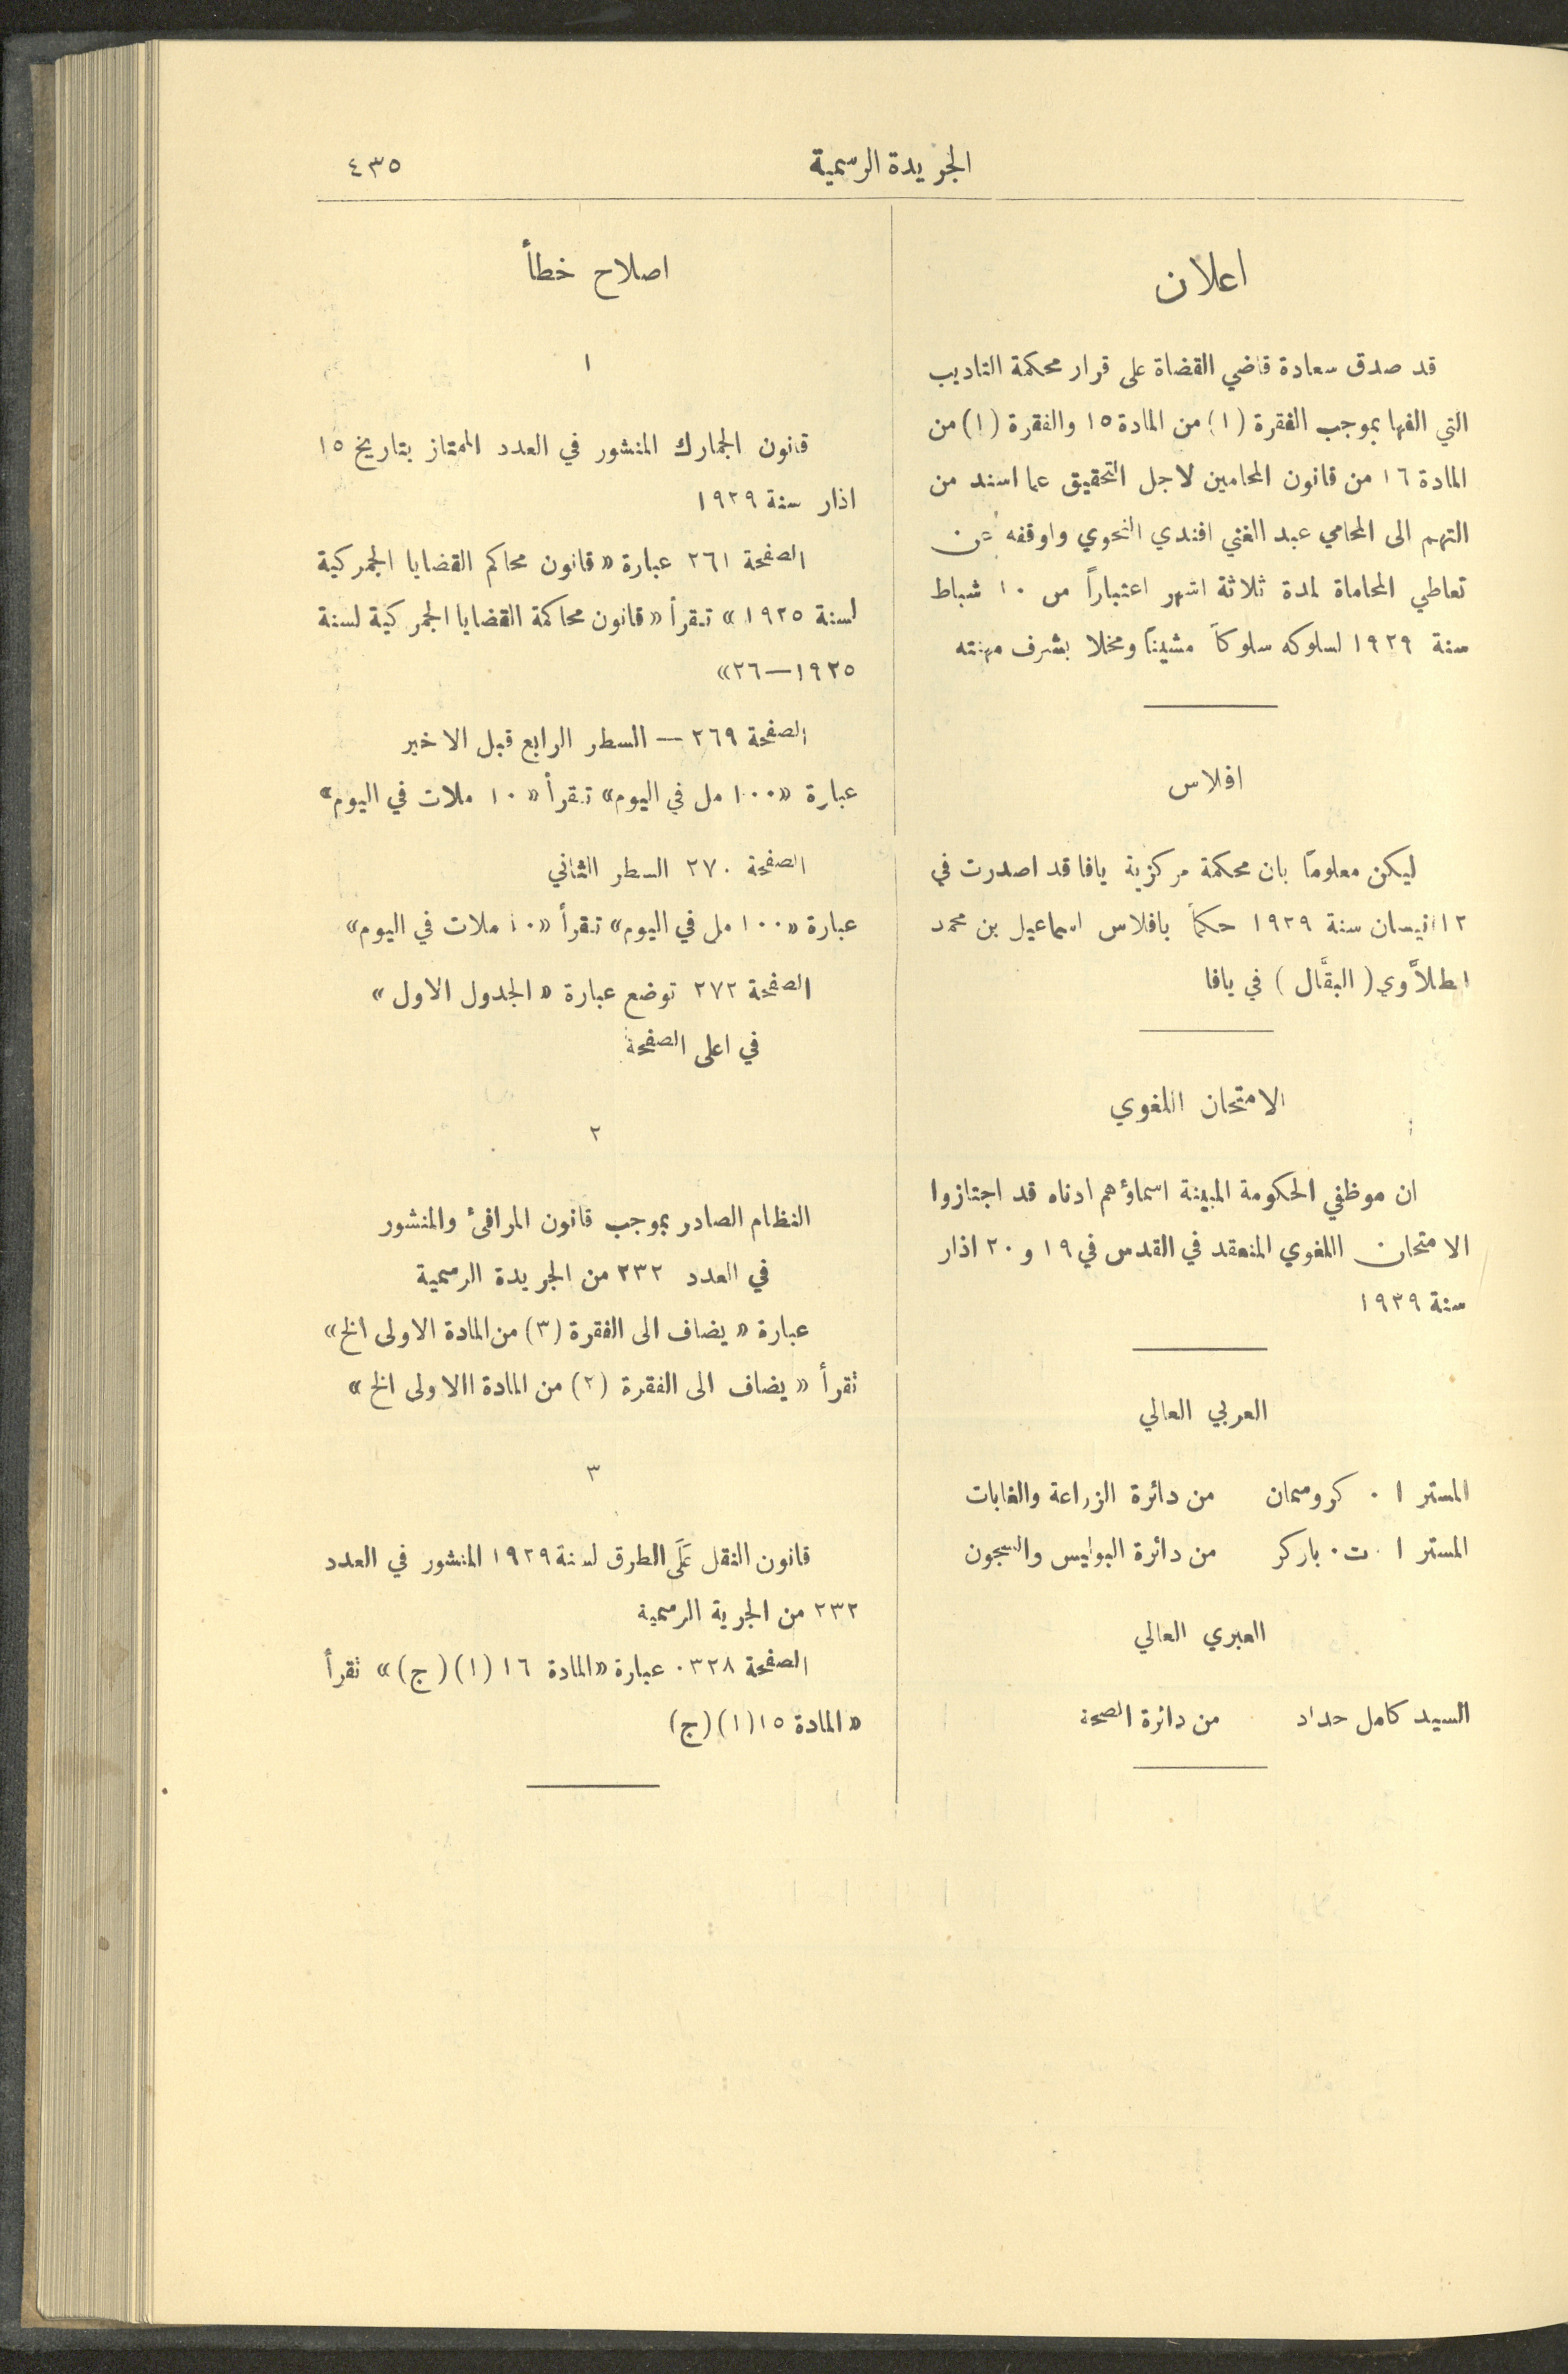 الجريدة الرسمية
٤٣٥
اعلان
قد صدق سعادة قاضي القضاة على قرار محكمة التاديب
التي الفها بموجب الفقرة (١) من المادة ١٥ والفقرة (١) من
المادة ١٦ من قانون المحامين لاجل التحقيق عما اسند من
التهم الى المحامي عبد الغني افندي النحوي واوقفه عن
تعاطي المحاماة لمدة ثلاثة اشهر اعتباراً من ١٠ شباط
سنة ١٩٢٩ لسلوكه سلوكاً مشيناً ومخلا بشرف مهنته
افلاس
ليكن معلوماً بان محكمة مركزية يافا قد اصدرت في
١٢ نيسان سنة ١٩٢٩ حكماً بافلاس اسماعيل بن محمد
اطلاَّوي (البقَّال) في يافا
الامتحان اللغوي
ان موظفي الحكومة المبينة اسماؤهم ادناه قد اجتازوا
الامتحان اللغوي المنعقد في القدس في ١٩ و ٢٠ اذار
سنة ١٩٢٩
العربي العالي
المستر ا . كروسمان من دائرة الزراعة والغابات
المستر ا . ت . باركر من دائرة البوليس والسجون
العبري العالي
السيد كامل حداد من دائرة الصحة
اصلاح خطأ
١
قانون الجمارك المنشور في العدد الممتاز بتاريخ ١٥
اذار سنة ١٩٢٩
الصفحة ٢٦١ عبارة «قانون محاكم القضايا الجمركية
لسنة ١٩٢٥» تقرأ «قانون محاكمة القضايا الجمركية لسنة
١٩٢٥—٢٦»
الصفحة ٢٦٩ — السطر الرابع قبل الاخير
عبارة «١٠٠ مل في اليوم» تقرأ «١٠ ملات في اليوم»
الصفحة ٢٧٠ السطر الثاني
عبارة «١٠٠ مل في اليوم» تقرأ «١٠ ملات في اليوم»
الصفحة ٢٧٢ توضع عبارة «الجدول الاول»
في اعلى الصفحة
٢
النظام الصادر بموجب قانون المرافئ والمنشور
في العدد ٢٣٢ من الجريدة الرسمية
عبارة «يضاف الى الفقرة (٣) من المادة الاولى الخ»
تقرأ «يضاف الى الفقرة (٢) من المادة االاولى الخ»
٣
قانون النقل عَلَى الطرق لسنة ١٩٢٩ المنشور في العدد
٢٣٢ من الجرية الرسمية
الصفحة ٣٢٨. عبارة «المادة ١٦ (١) (ج)» تقرأ
«المادة ١٥ (١) (ج)